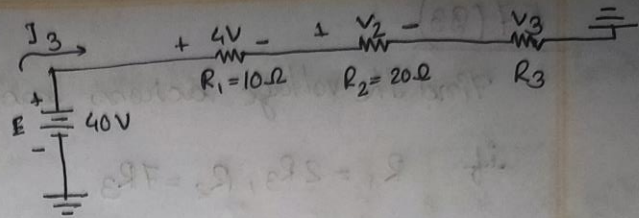 I3 + 4V - + V2 - V3
R1 = 10Ω R2 = 20Ω R3
+
E 40V
-